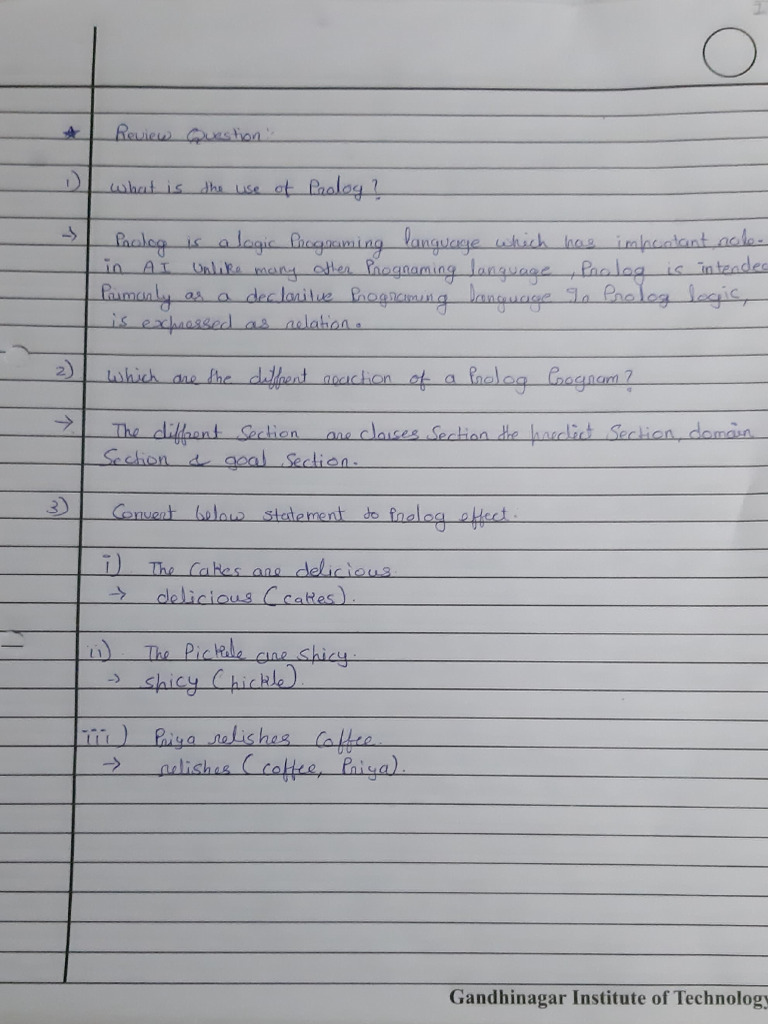 * Review Question:
1) What is the use of Prolog?
→ Prolog is a logic Programing language which has important role
in AI Unlike many other Programing language, Prolog is intended
Primarily as a declaritve Programing language In Prolog logic,
is expressed as relation.
2) Which are the diffrent of a Prolog Program?
→ The diffrent Section are clauses Section the predict Section, domain
Section & goal Section.
3) Convert below statement to Prolog effect.
i) The Cakes are delicious
→ delicious (cakes).
ii) The Pickle are spicy.
→ spicy (pickle).
iii) Priya relishes Coffee.
→ relishes (coffee, Priya).
Gandhinagar Institute of Technology